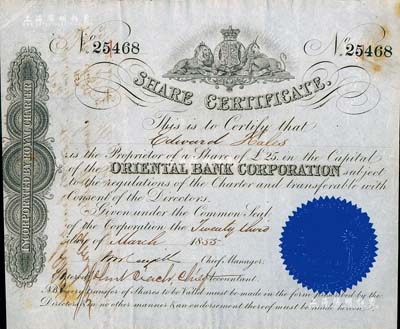 No 25468
No 25468
SHARE CERTIFICATE.
INCORPORATED BY ROYAL CHARTER
This is to Certify that
Edward Hales
is the Proprietor of a Share of £25, in the Capital
of the ORIENTAL BANK CORPORATION subject
to the regulations of the Charter and transferable with
Consent of the Directors.
Given under the Common Seal
of the Corporation the Twenty third
day of March 1855
Chief Manager.
Accountant.
NB Every transfer of Shares to be Valid must be made in the form prescribed by the
Directors & in no other manner & an endorsement thereof must be made hereon